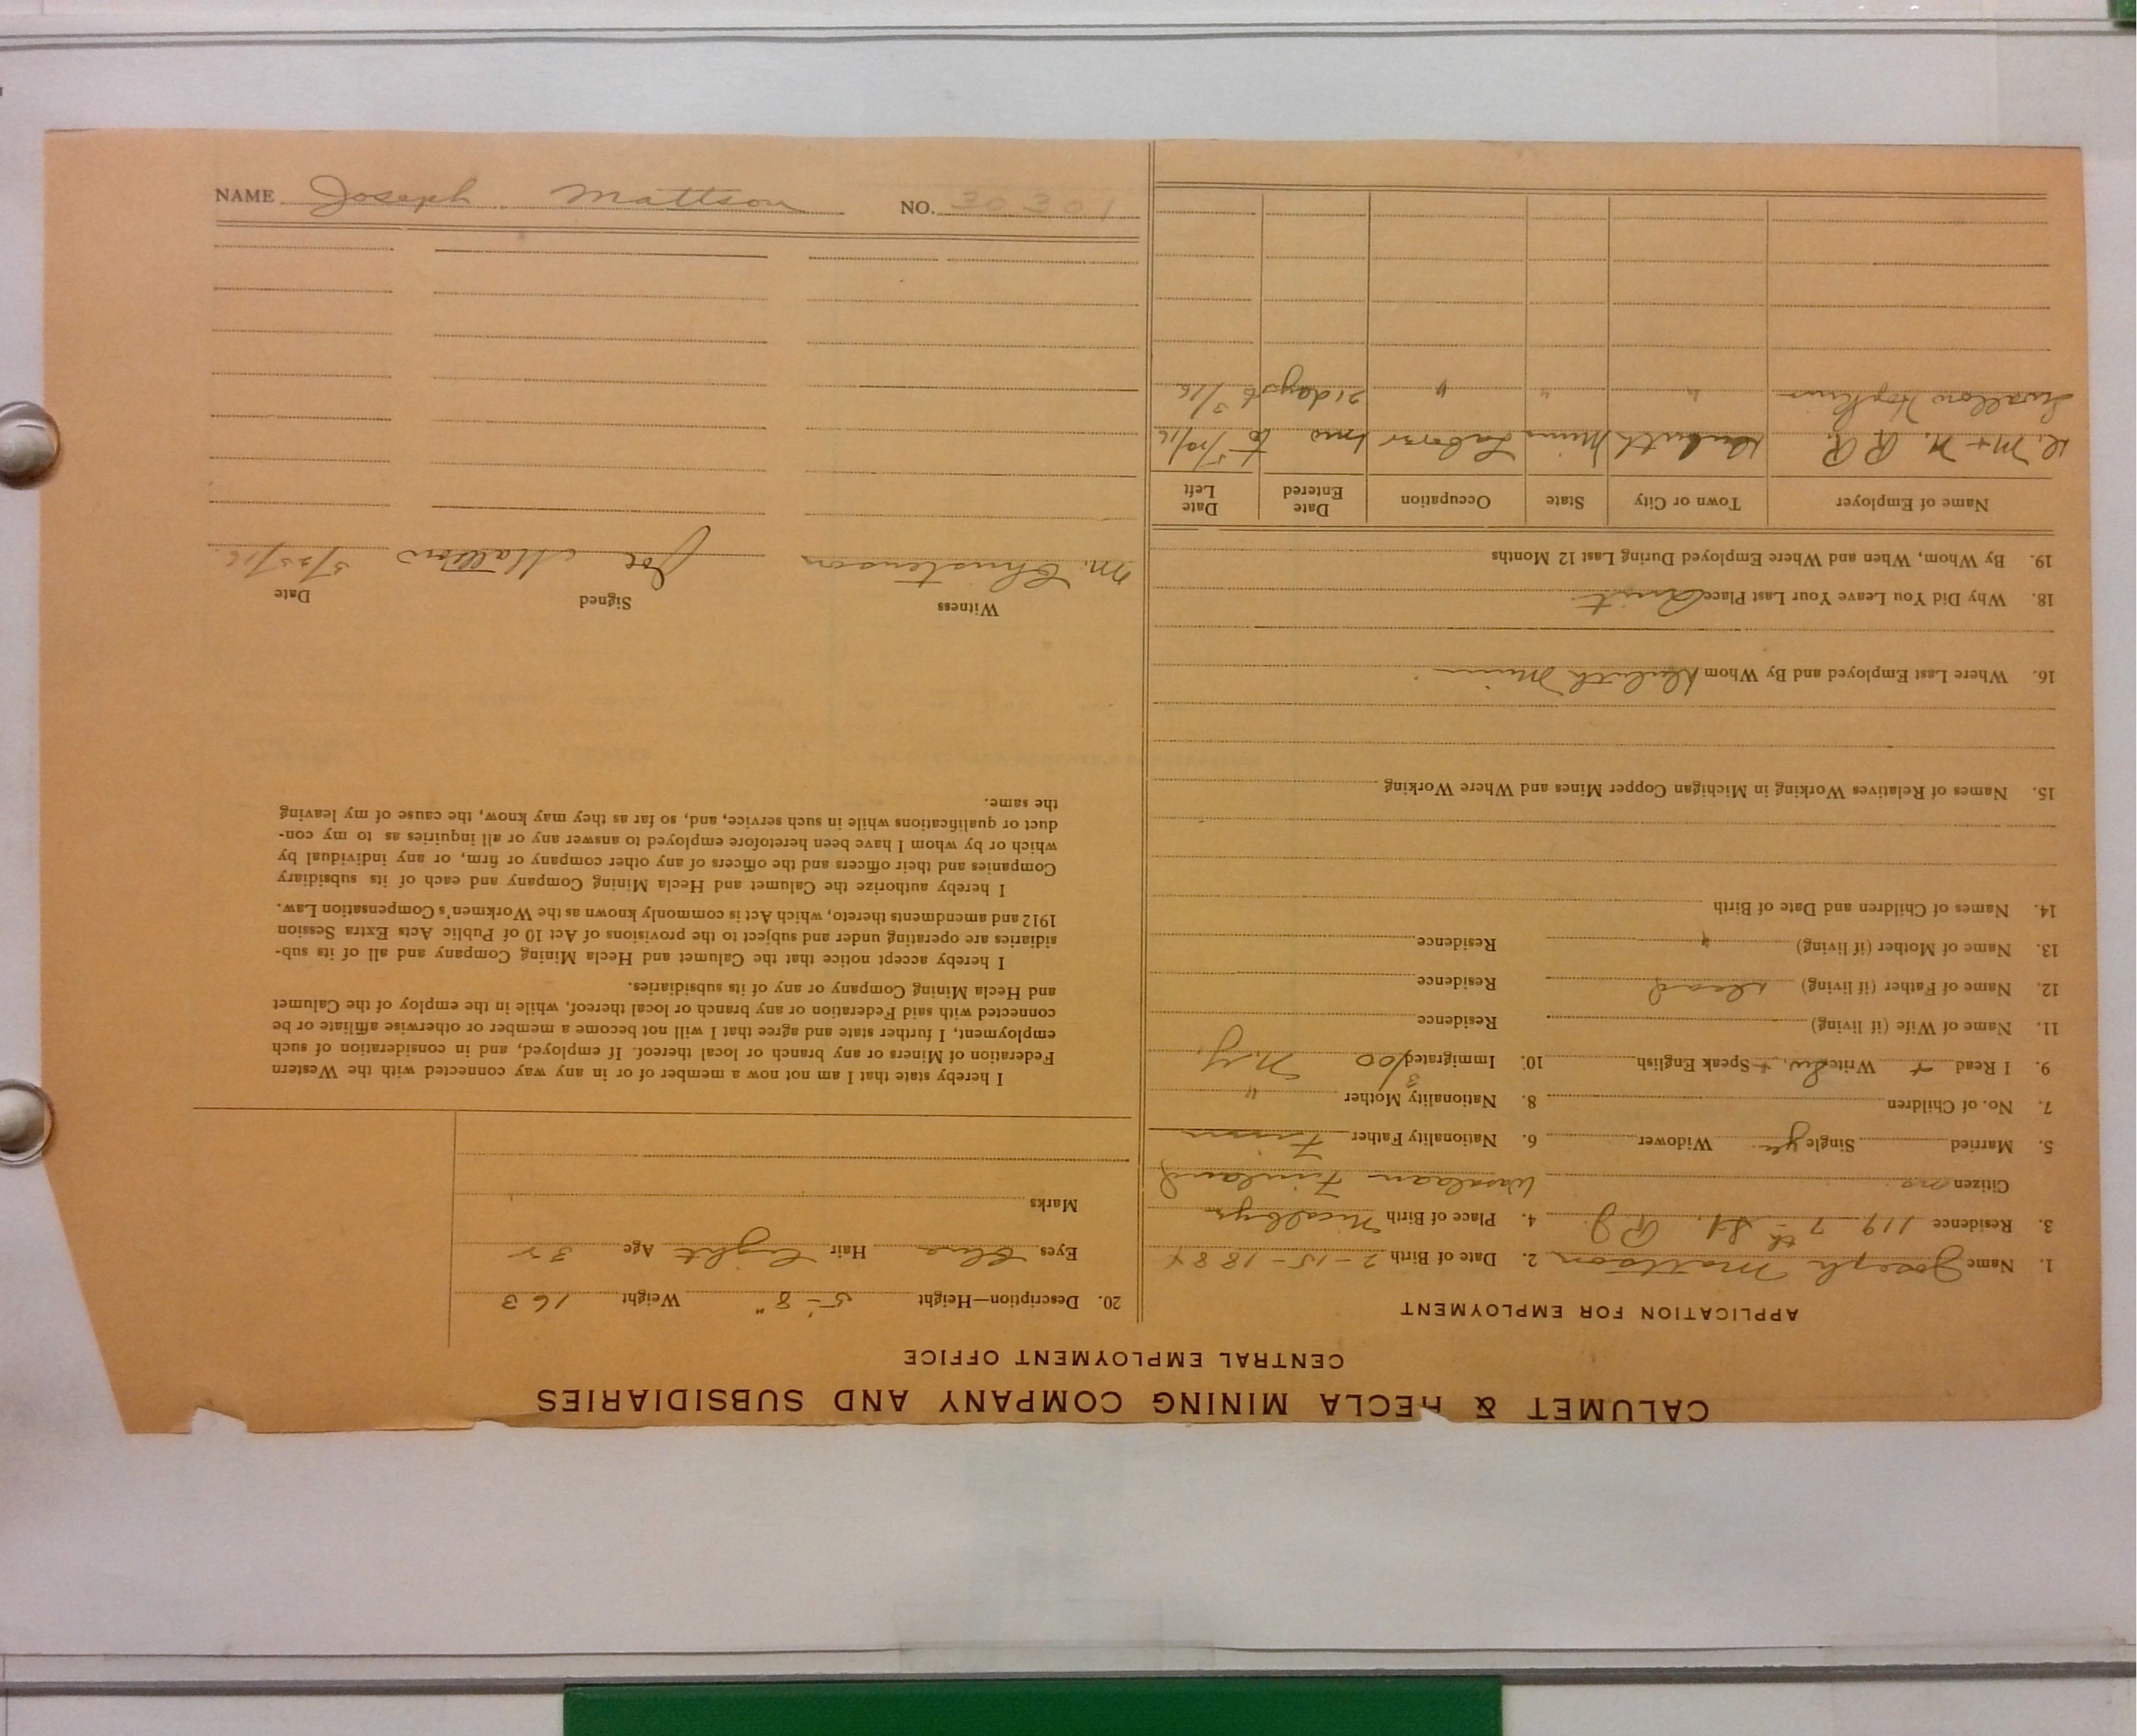 NAME Joseph Mattson NO. 30301
CALUMET & HECLA MINING COMPANY AND SUBSIDIARIES
CENTRAL EMPLOYMENT OFFICE
APPLICATION FOR EMPLOYMENT
1. Name Joseph Mattson 2. Date of Birth 2-15-1884
3. Residence 119-7th St. 4. Place of Birth
Citizen no Finland
5. Married Single yes Widower 6. Nationality Father Finn
7. No. of Children 8. Nationality Mother "
9. I Read + Write + Speak English 10. Immigrated 3/00 N.Y.
11. Name of Wife (if living) Residence
12. Name of Father (if living) Dead Residence
13. Name of Mother (if living) " Residence
14. Names of Children and Date of Birth
15. Names of Relatives Working in Michigan Copper Mines and Where Working
16. Where Last Employed and By Whom Duluth Minn
18. Why Did You Leave Your Last Place Quit
19. By Whom, When and Where Employed During Last 12 Months
Name of Employer Town or City State Occupation Date Entered Date Left
D. M + N. R R. Duluth Minn Laborer 1 mo to 5/20/16
Swallow Hopkins " " " 21 days to 3/16
20. Description—Height 5'-8" Weight 163
Eyes Blue Hair Light Age 32
Marks
I hereby state that I am not now a member of or in any way connected with the Western
Federation of Miners or any branch or local thereof. If employed, and in consideration of such
employment, I further state and agree that I will not become a member or otherwise affiliate or be
connected with said Federation or any branch or local thereof, while in the employ of the Calumet
and Hecla Mining Company or any of its subsidiaries.
I hereby accept notice that the Calumet and Hecla Mining Company and all of its sub-
sidiaries are operating under and subject to the provisions of Act 10 of Public Acts Extra Session
1912 and amendments thereto, which Act is commonly known as the Workmen's Compensation Law.
I hereby authorize the Calumet and Hecla Mining Company and each of its subsidiary
Companies and their officers and the officers of any other company or firm, or any individual by
which or by whom I have been heretofore employed to answer any or all inquiries as to my con-
duct or qualifications while in such service, and, so far as they may know, the cause of my leaving
the same.
Witness Signed Date
M. Christenson Joe Mattson 5/23/16